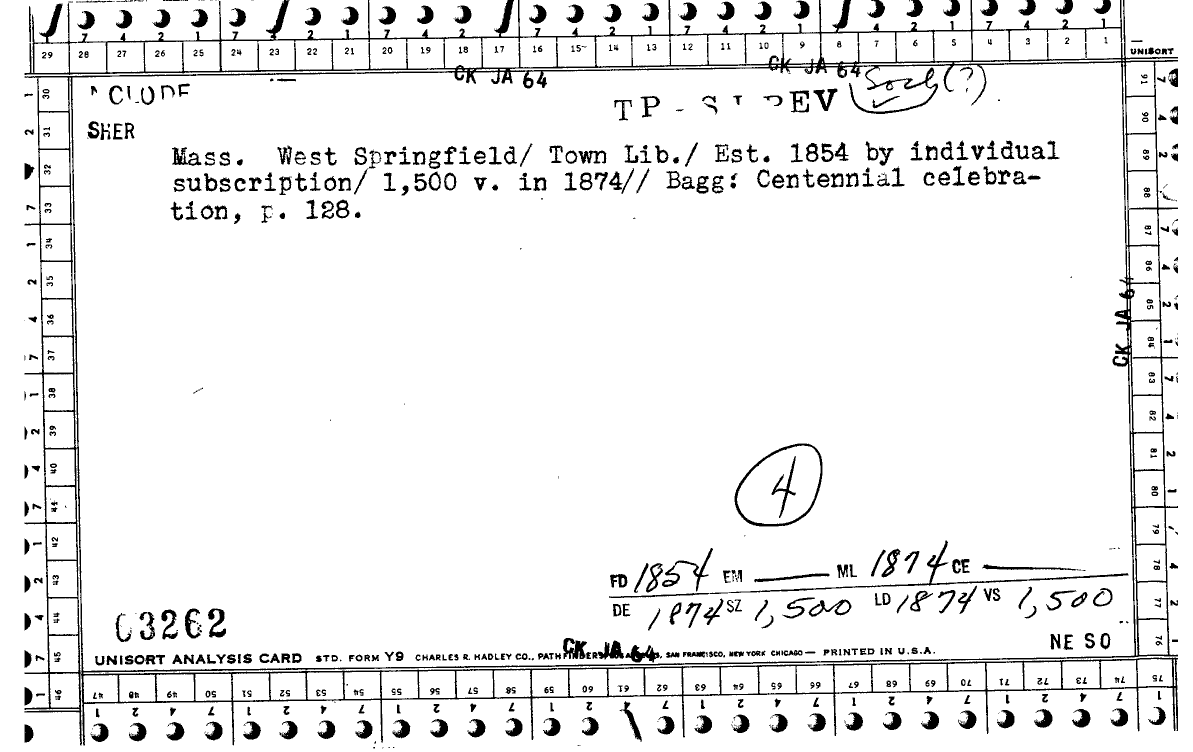 7 4 2 1 7 4 2 1 7 4 2 1 7 4 2 1 7 4 2 1 7 4 2 1
29 28 27 26 25 24 23 22 21 20 19 18 17 16 15 14 13 12 11 10 9 8 7 6 5 4 3 2 1 UNISORT
CK JA 64 CK JA 64
Soch (?)
SHER
Mass. West Springfield/ Town Lib./ Est. 1854 by individual
subscription/ 1,500 v. in 1874// Bagg: Centennial celebra-
tion, p. 128.
CK JA 64
4
FD 1854 EM — ML 1874 CE —
DE 1874 SZ 1,500 LD 1874 VS 1,500
03262
NE SO
CK JA 64
UNISORT ANALYSIS CARD STD. FORM Y9 CHARLES R. HADLEY CO., PATHFINDERS, LOS ANGELES, SAN FRANCISCO, NEW YORK CHICAGO — PRINTED IN U.S.A.
46 47 48 49 50 51 52 53 54 55 56 57 58 59 60 61 62 63 64 65 66 67 68 69 70 71 72 73 74 75